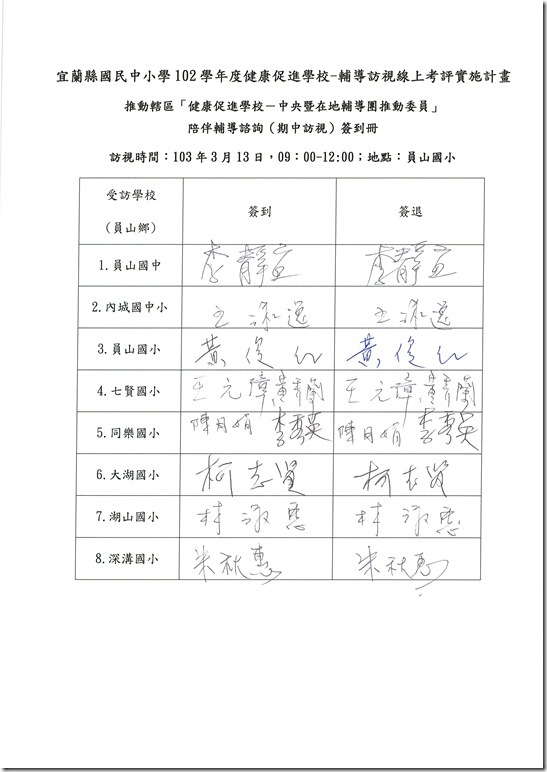 宜蘭縣國民中小學102學年度健康促進學校-輔導訪視線上考評實施計畫
推動轄區「健康促進學校－中央暨在地輔導團推動委員」
陪伴輔導諮詢(期中訪視)簽到冊
訪視時間：103年3月13日，09：00-12:00；地點：員山國小
受訪學校
(員山鄉)
簽到
簽退
1.員山國中 李靜宜 李靜宜
2.內城國中小 王泳逸 王泳逸
3.員山國小 黃俊仁 黃俊仁
4.七賢國小 王元璋 黃秀蘭 王元璋 黃秀蘭
5.同樂國小 陳月娟 李秀英 陳月娟 李秀英
6.大湖國小 柯志賢 柯志賢
7.湖山國小 林淑惠 林淑惠
8.深溝國小 朱秋惠 朱秋惠